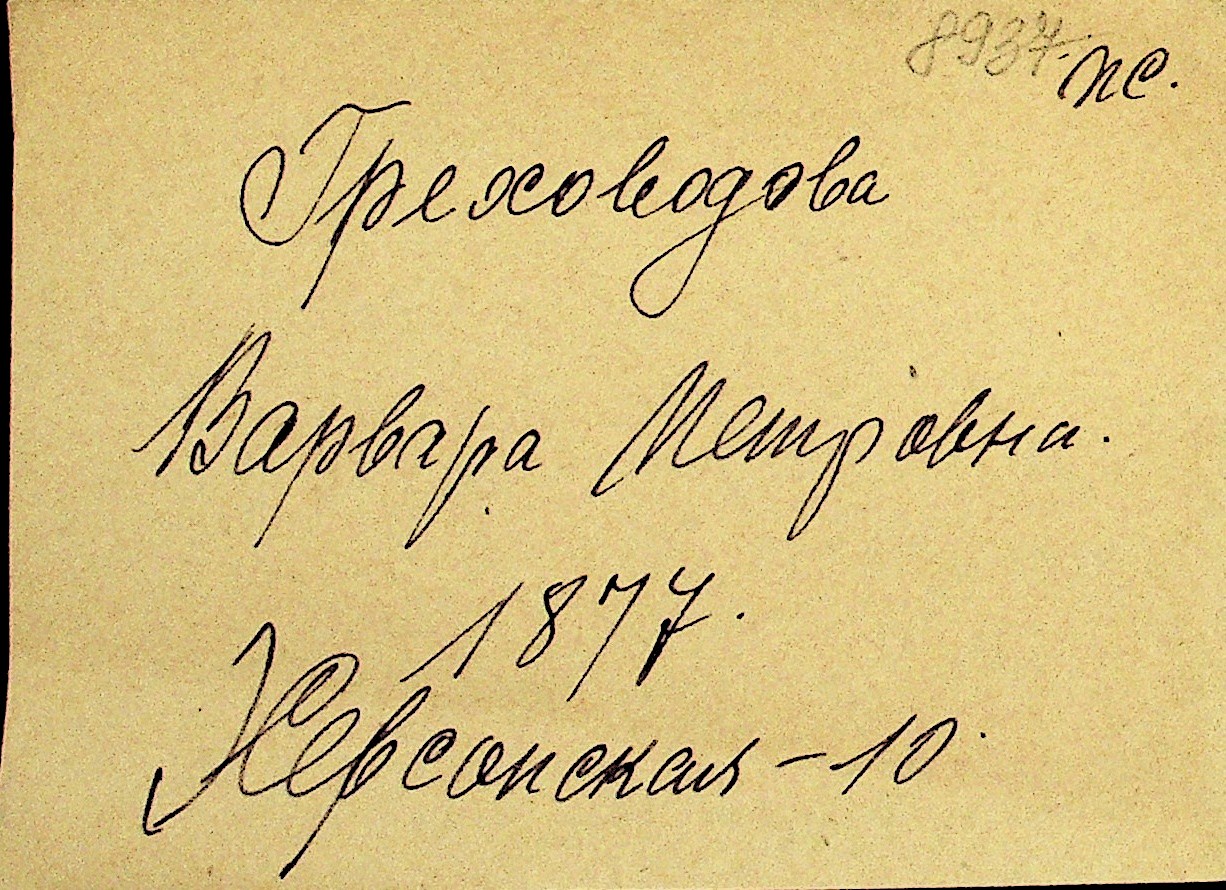 8937 пс.
Греховодова
Варвара Петровна.
1877.
Херсонская – 10.